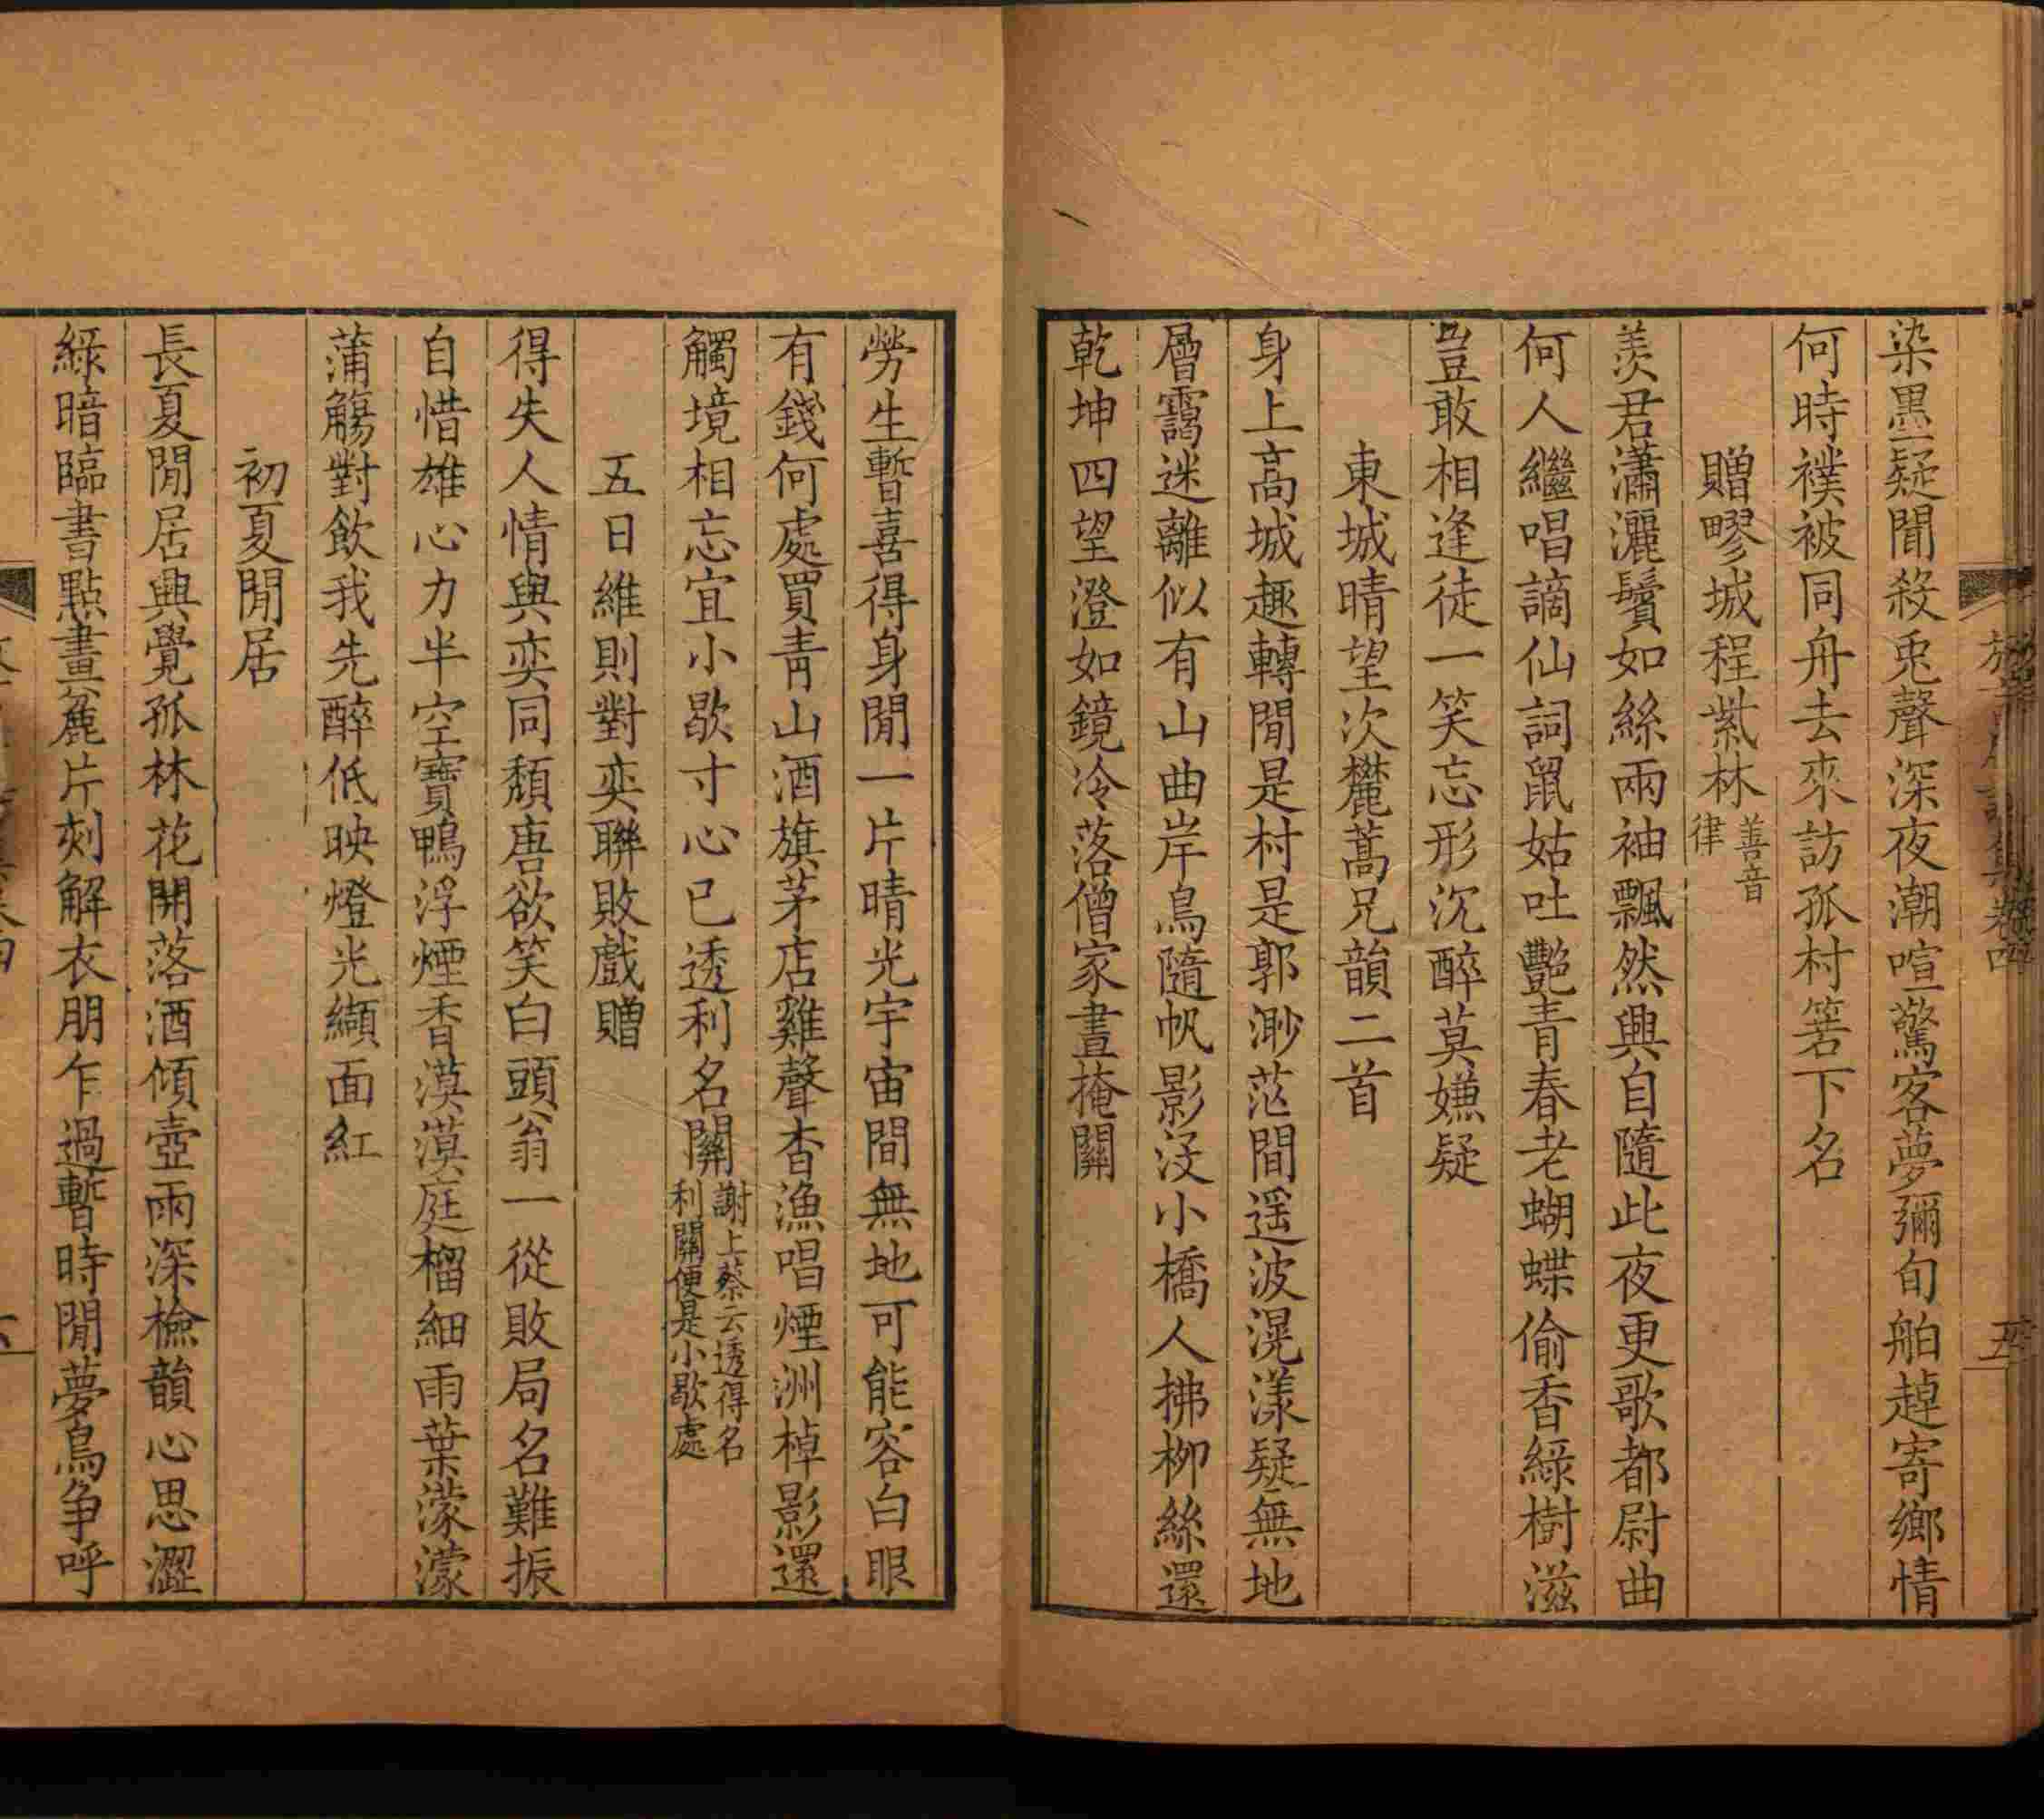 染墨疑閒殺兎聲深夜潮喧驚客夢彌旬舶趠寄鄉情
何時襆被同舟去來訪孤村箬下名
贈疁城程紫林善音律
羨君瀟灑鬢如絲兩袖飄然興自隨此夜更歌都尉曲
何人繼唱謫仙詞鼠姑吐艷青春老蝴蝶偷香綠樹滋
豈敢相逢徒一笑忘形沉醉莫嫌疑
東城晴望次欎蒿兄韻二首
身上高城趣轉閒是村是郭渺茫間遥波滉漾疑無地
層靄迷離似有山曲岸鳥隨帆影沒小橋人拂柳絲還
乾坤四望澄如鏡冷落僧家晝掩關
勞生暫喜得身閒一片晴光宇宙間無地可能容白眼
有錢何處買青山酒旗茅店雞聲杳漁唱煙洲棹影還
觸境相忘宜小歇寸心已透利名關謝上蔡云透得名利關便是小歇處
五日維則對奕聯敗戲贈
得失人情與奕同頹唐欲笑白頭翁一從敗局名難振
自惜雄心力半空寶鴨浮煙香漠漠庭榴細雨葉濛濛
蒲觴對飲我先醉低映燈光纈面紅
初夏閒居
長夏閒居興覺孤林花開落酒傾壺雨深檢韻心思澀
綠暗臨書點畫麄片刻解衣朋乍過暫時閒夢鳥争呼